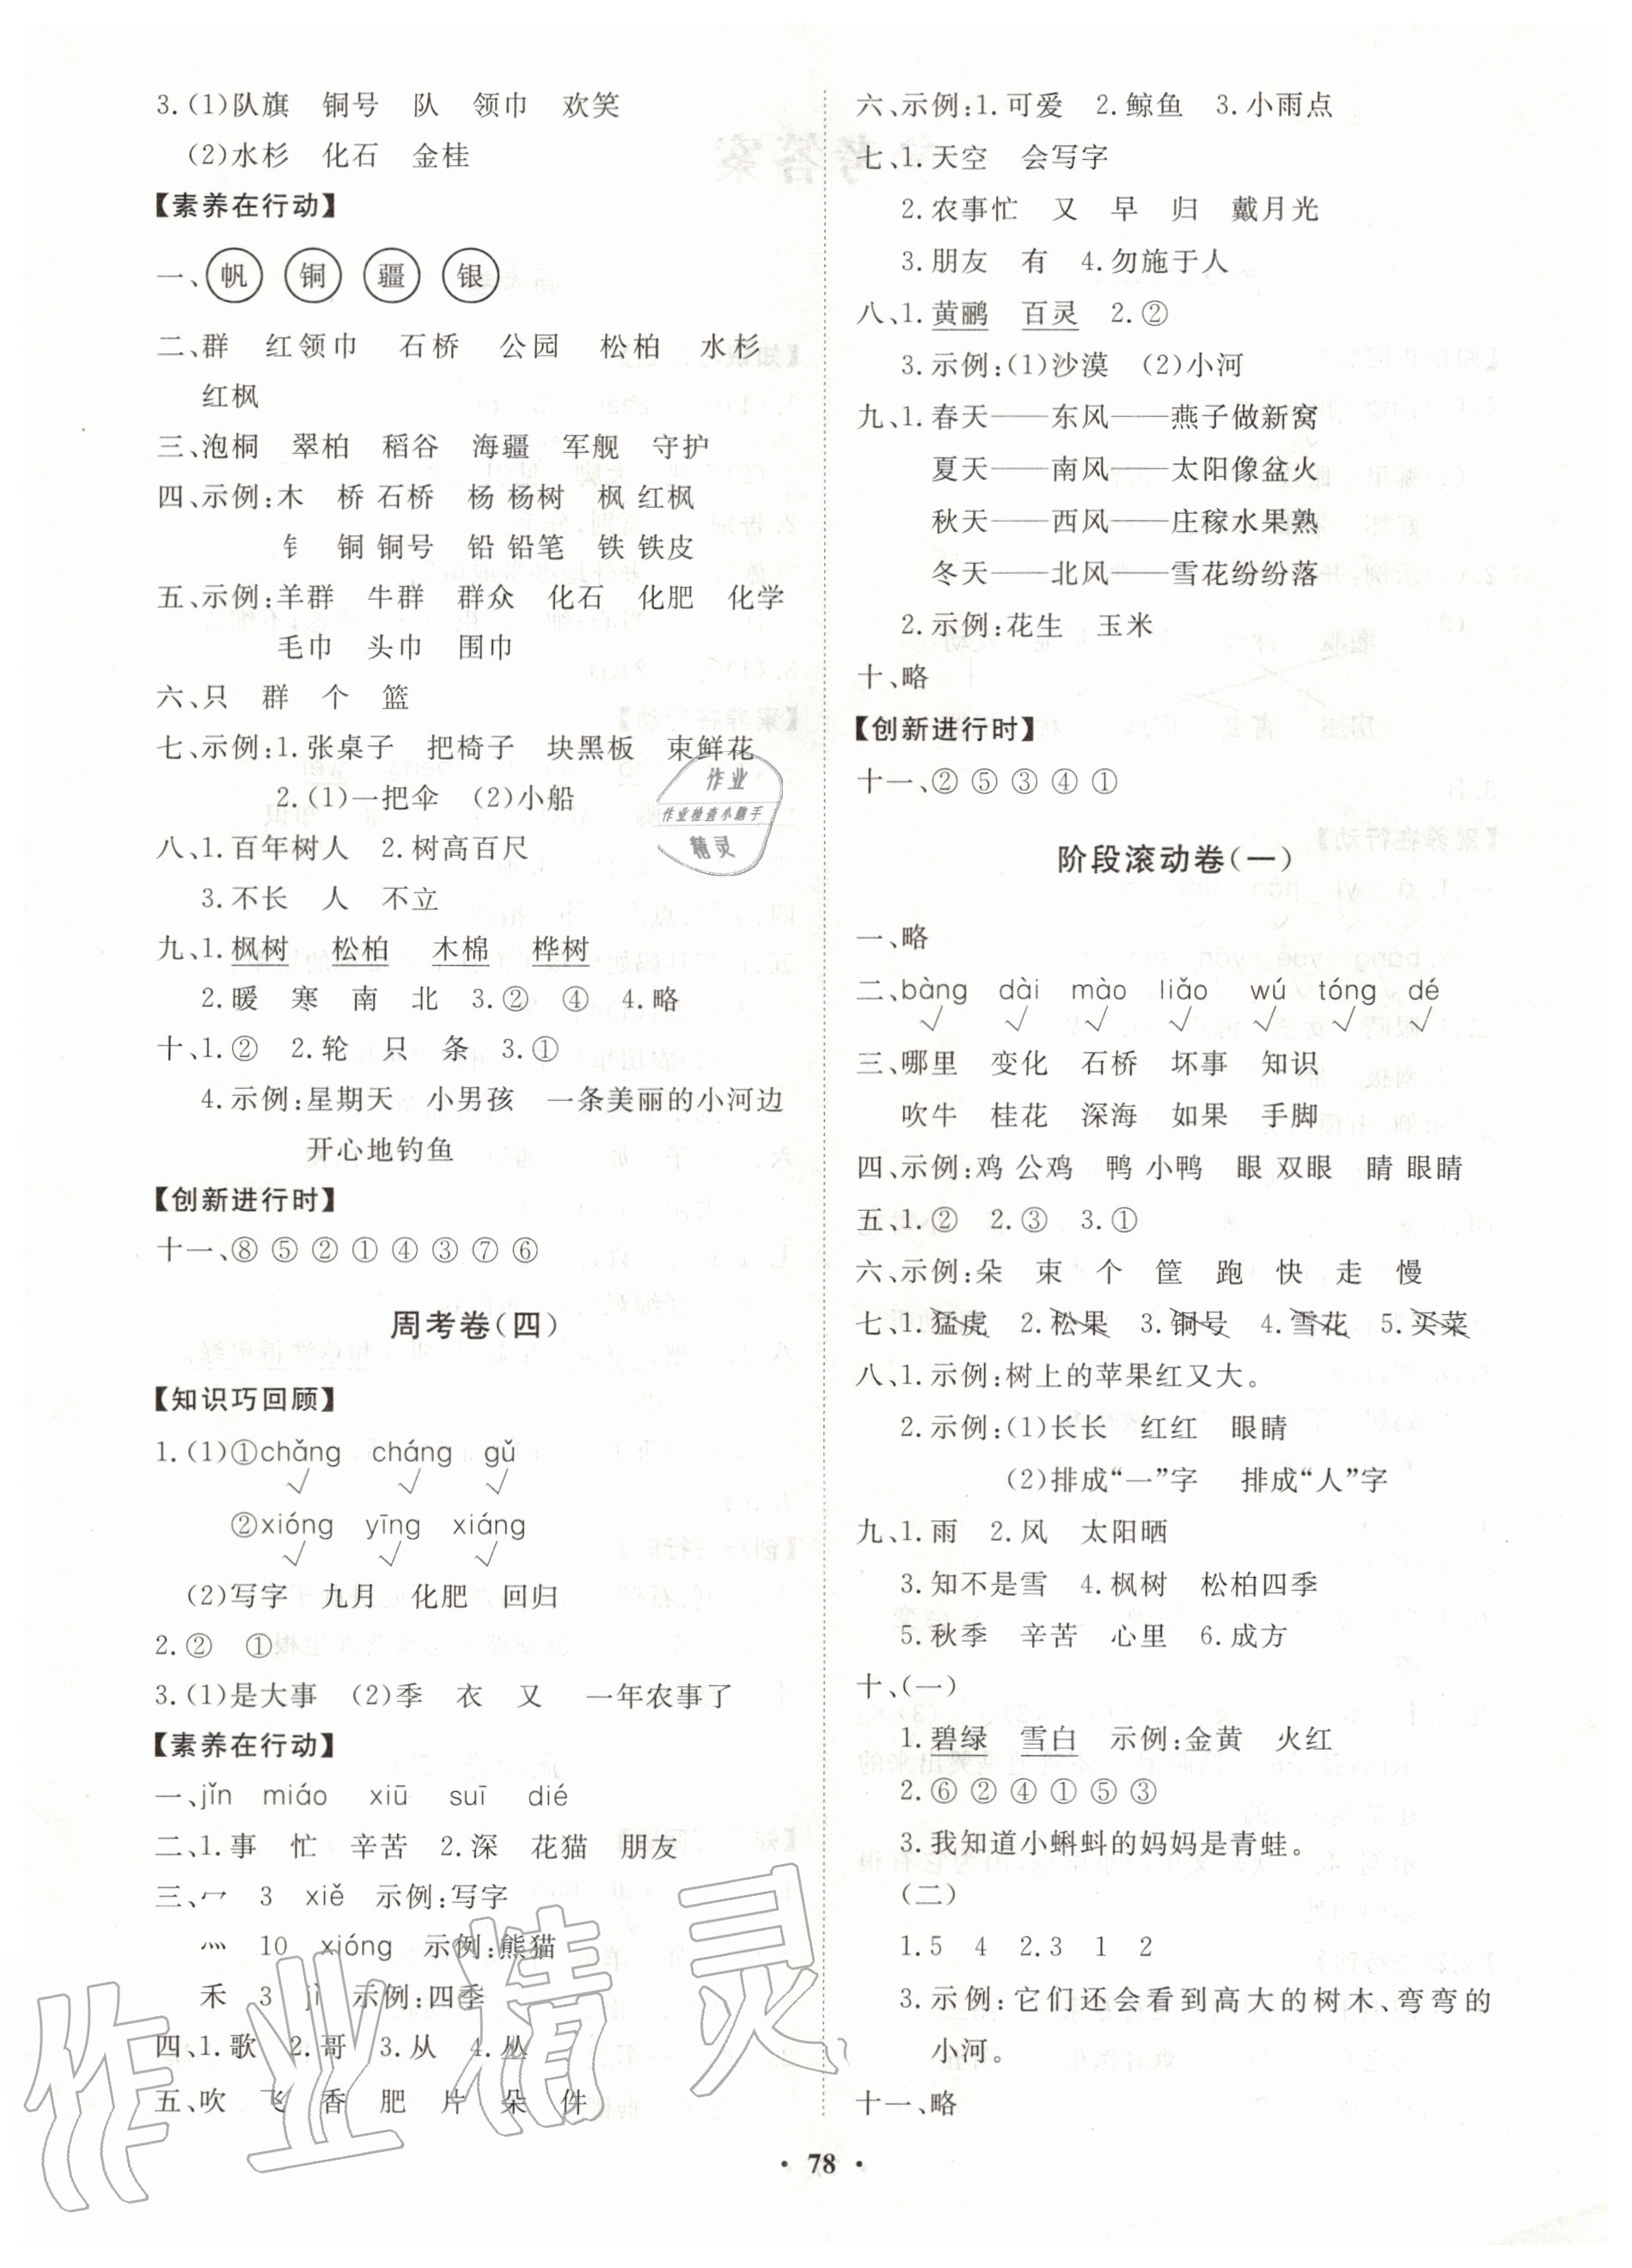 3.(1)队旗 铜号 队 领巾 欢笑
(2)水杉 化石 金桂
【素养在行动】
一、帆 铜 疆 银
二、群 红领巾 石桥 公园 松柏 水杉
红枫
三、泡桐 翠柏 稻谷 海疆 军舰 守护
四、示例:木 桥 石桥 杨 杨树 枫 红枫
钅 铜 铜号 铅 铅笔 铁 铁皮
五、示例:羊群 牛群 群众 化石 化肥 化学
毛巾 头巾 围巾
六、只 群 个 篮
七、示例:1.张桌子 把椅子 块黑板 束鲜花
2.(1)一把伞 (2)小船
八、1.百年树人 2.树高百尺
3.不长 人 不立
九、1.枫树 松柏 木棉 桦树
2.暖 寒 南 北 3.② ④ 4.略
十、1.② 2.轮 只 条 3.①
4.示例:星期天 小男孩 一条美丽的小河边
开心地钓鱼
【创新进行时】
十一、⑧ ⑤ ② ① ④ ③ ⑦ ⑥
周考卷(四)
【知识巧回顾】
1.(1)①chǎng cháng gǔ
√ √ √
②xióng yīng xiáng
√ √ √
(2)写字 九月 化肥 回归
2.② ①
3.(1)是大事 (2)季 衣 又 一年农事了
【素养在行动】
一、jǐn miáo xiū suī dié
二、1.事 忙 辛苦 2.深 花猫 朋友
三、冖 3 xiě 示例:写字
灬 10 xióng 示例:熊猫
禾 3 jì 示例:四季
四、1.歌 2.哥 3.从 4.丛
五、吹 飞 香 肥 片 朵 件
六、示例:1.可爱 2.鲸鱼 3.小雨点
七、1.天空 会写字
2.农事忙 又 早 归 戴月光
3.朋友 有 4.勿施于人
八、1.黄鹂 百灵 2.②
3.示例:(1)沙漠 (2)小河
九、1.春天——东风——燕子做新窝
夏天——南风——太阳像盆火
秋天——西风——庄稼水果熟
冬天——北风——雪花纷纷落
2.示例:花生 玉米
十、略
【创新进行时】
十一、② ⑤ ③ ④ ①
阶段滚动卷(一)
一、略
二、bàng dài mào liǎo wú tóng dé
√ √ √ √ √ √ √
三、哪里 变化 石桥 坏事 知识
吹牛 桂花 深海 如果 手脚
四、示例:鸡 公鸡 鸭 小鸭 眼 双眼 睛 眼睛
五、1.② 2.③ 3.①
六、示例:朵 束 个 筐 跑 快 走 慢
七、1.猛虎 2.松果 3.铜号 4.雪花 5.买菜
八、1.示例:树上的苹果红又大。
2.示例:(1)长长 红红 眼睛
(2)排成“一”字 排成“人”字
九、1.雨 2.风 太阳晒
3.知不是雪 4.枫树 松柏四季
5.秋季 辛苦 心里 6.成方
十、(一)
1.碧绿 雪白 示例:金黄 火红
2.⑥ ② ④ ① ⑤ ③
3.我知道小蝌蚪的妈妈是青蛙。
(二)
1.5 4 2.3 1 2
3.示例:它们还会看到高大的树木、弯弯的
小河。
十一、略
作业
作业检查小助手
精灵
作业精灵
· 78 ·